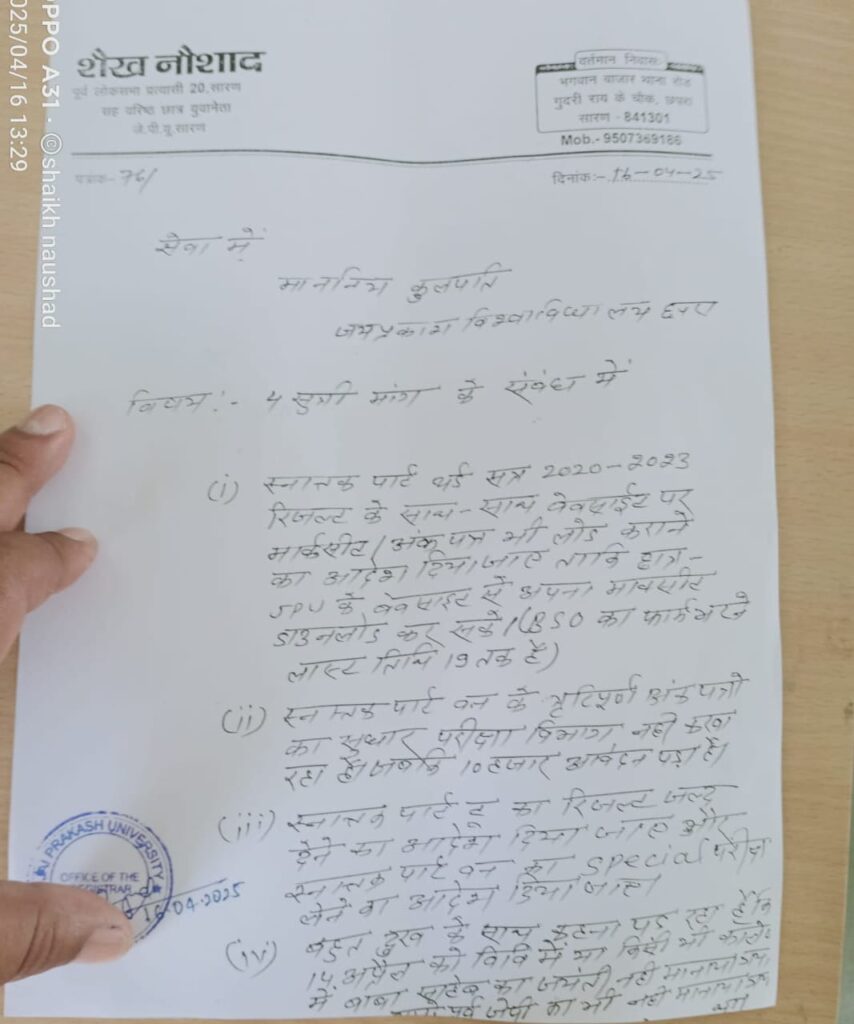 OPPO A31 · ©shaikh naushad
2025/04/16 13:29
शैख नौशाद
पूर्व लोकसभा प्रत्यासी 20, सारण
सह वरिष्ठ छात्र युवानेता
जे.पी.यू. सारण
वर्तमान निवास
भगवान बाजार थाना रोड
गुदरी राय के चौक, छपरा
सारण - 841301
Mob.- 9507369186
पत्रांक- 76/
दिनांक:- 16-04-25
सेवा में
माननिय कुलपति
जयप्रकाश विश्वाविधालय छपरा
विषय :- 4 सुत्री मांग के संबंध में
(i) स्नातक पार्ट थर्ड सत्र 2020-2023
रिजल्ट के साथ-साथ वेवसाईट पर
मार्कसीट/अंक पत्र भी लोड कराने
का आदेश दिया जाए ताकि छात्र-
JPU के वेवसाइट से अपना मार्कसीट
डाउनलोड कर सके/(BSO का फार्म भरने
लास्ट तिथि 19 तक है)
(ii) स्नातक पार्ट वन के त्रुटिपूर्ण अंक पत्रो
का सुधार परीक्षा विभाग नही करवा
रहा है। जबकि 10 हजार आवेदन पड़ा है।
(iii) स्नातक पार्ट टू का रिजल्ट जल्द
देने का आदेश दिया जाए और
स्नातक पार्ट वन का special परीक्षा
लेने का आदेश दिया जाए।
(iv) बहुत दुख के साथ कहना पड़ रहा है कि
14 अप्रैल को विवि में या किसी भी कालेज
में बाबा साहेब का जयंती नही मानाया गया
पूर्व जेपी का भी नही मानाया गया
था
JAI PRAKASH UNIVERSITY
OFFICE OF THE
REGISTRAR
16.04.2025